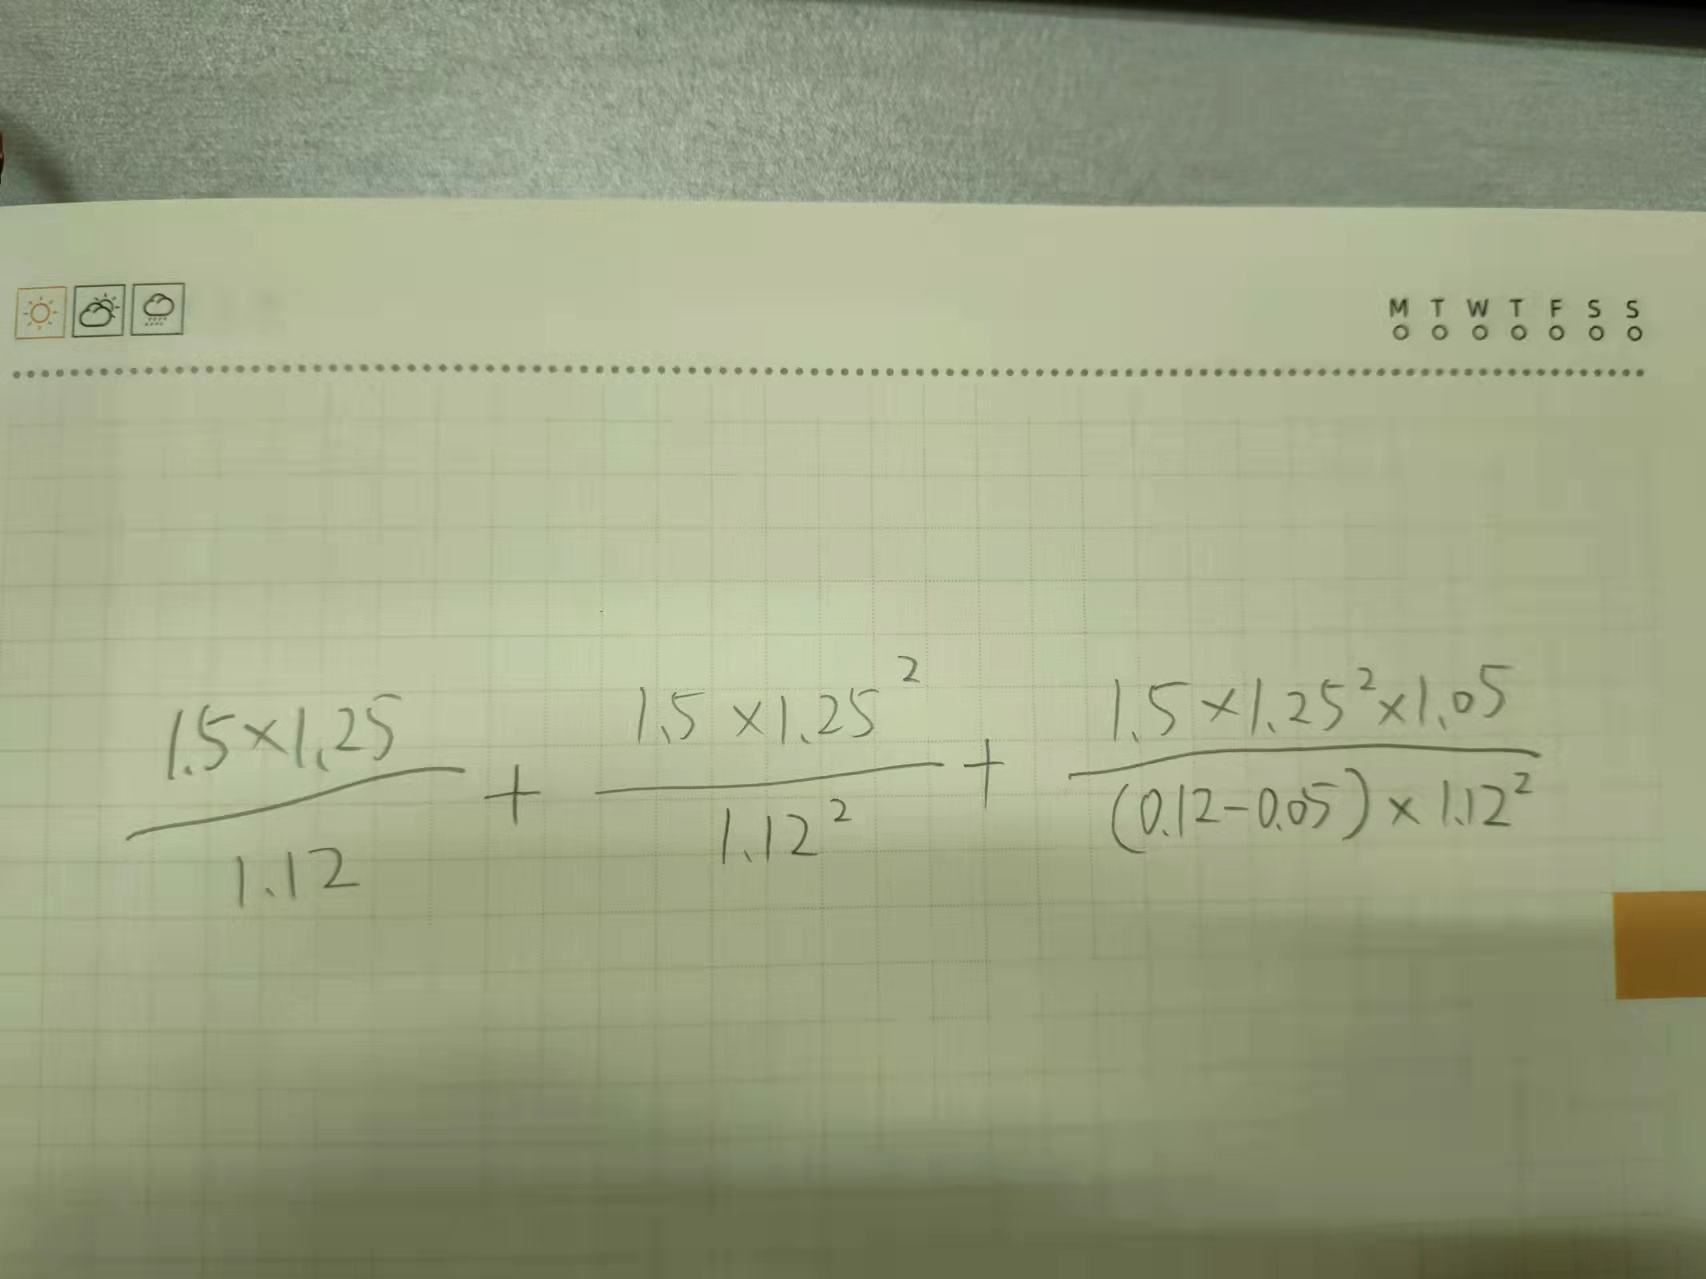 M T W T F S S
1.5×1.25/1.12 + 1.5×1.25²/1.12² + 1.5×1.25²×1.05/(0.12-0.05)×1.12²